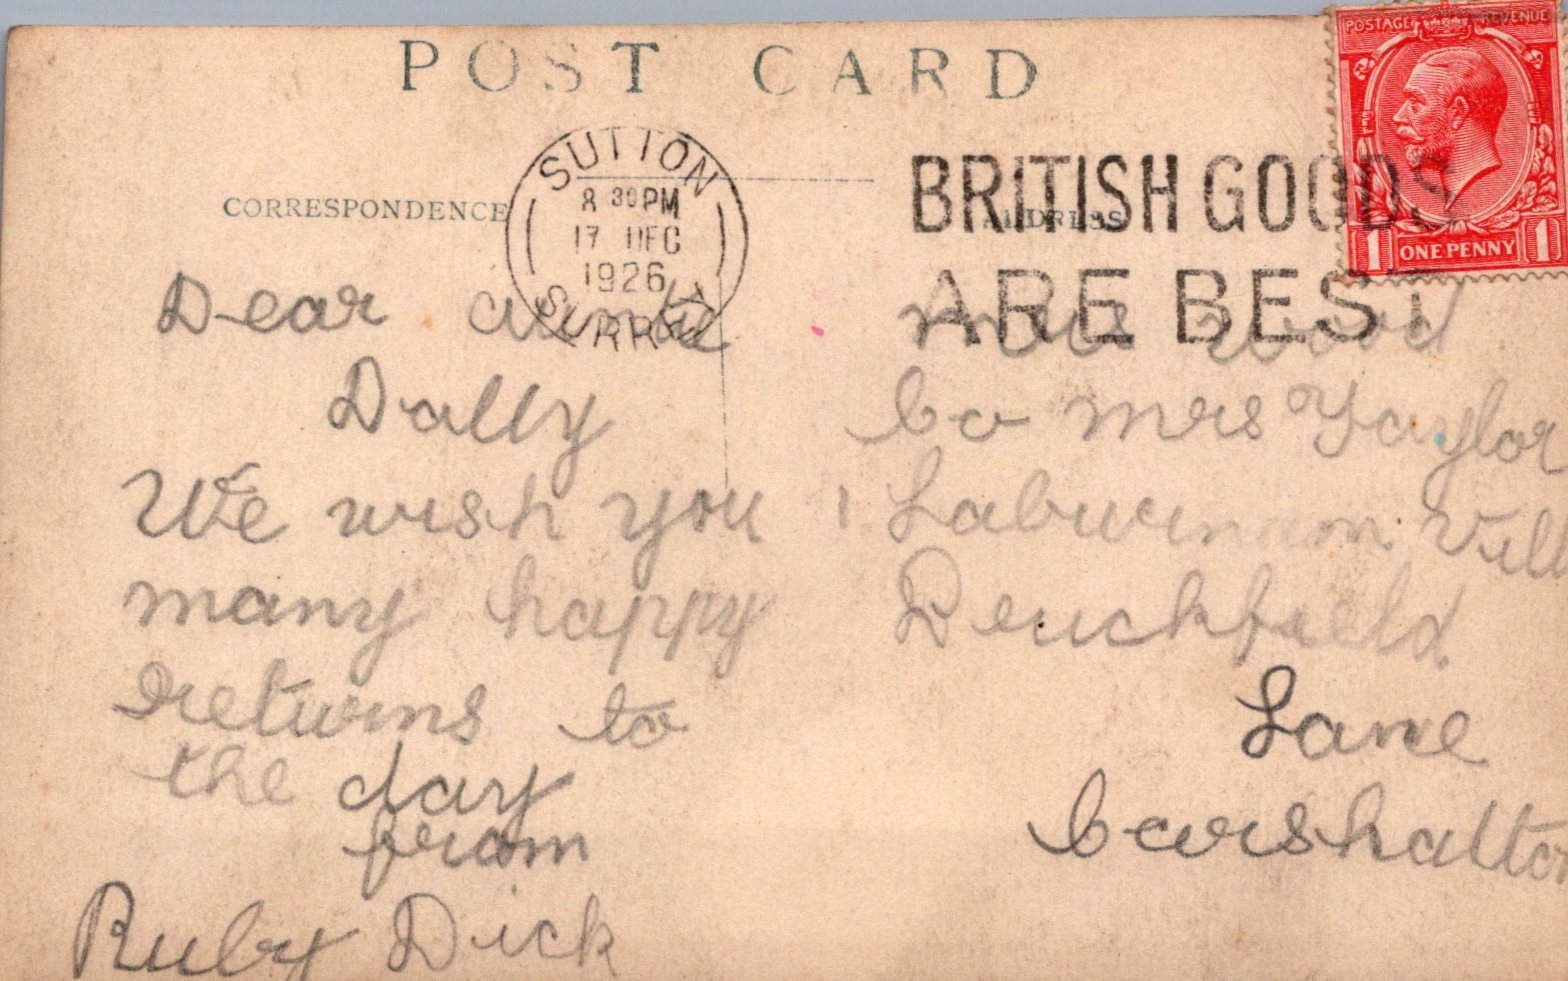 POST CARD
CORRESPONDENCE
ADDRESS
SUTTON
8 30 PM
17 DEC
1926
SURREY
BRITISH GOODS
ARE BEST
POSTAGE REVENUE
1 ONE PENNY 1
Dear aunt
Dolly
We wish you
many happy
returns to
the day
from
Ruby Dick
Mrs Wood
Co Mrs Taylor
1 Laburnam Vill
Denchfield
Lane
Carshalton